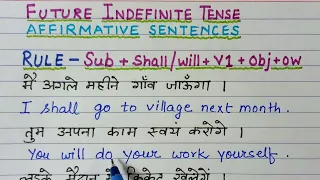 FUTURE INDEFINITE TENSE
AFFIRMATIVE SENTENCES
RULE – Sub + Shall/will + V1 + Obj + OW
मैं अगले महीने गाँव जाऊँगा ।
I shall go to village next month.
तुम अपना काम स्वयं करोगे ।
You will do your work yourself.
लड़के मैदान में क्रिकेट खेलेगें ।